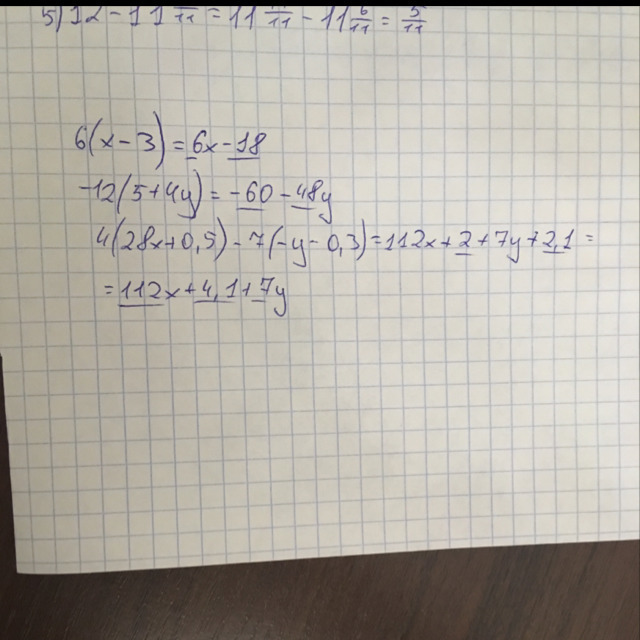 5) 12 - 11 /11 = 11 /11 - 11 6/11 = 5/11
6(x-3) = 6x-18
-12(5+4y) = -60-48y
4(28x+0,5)-7(-y-0,3)=112x+2+7y+2,1=
=112x+4,1+7y